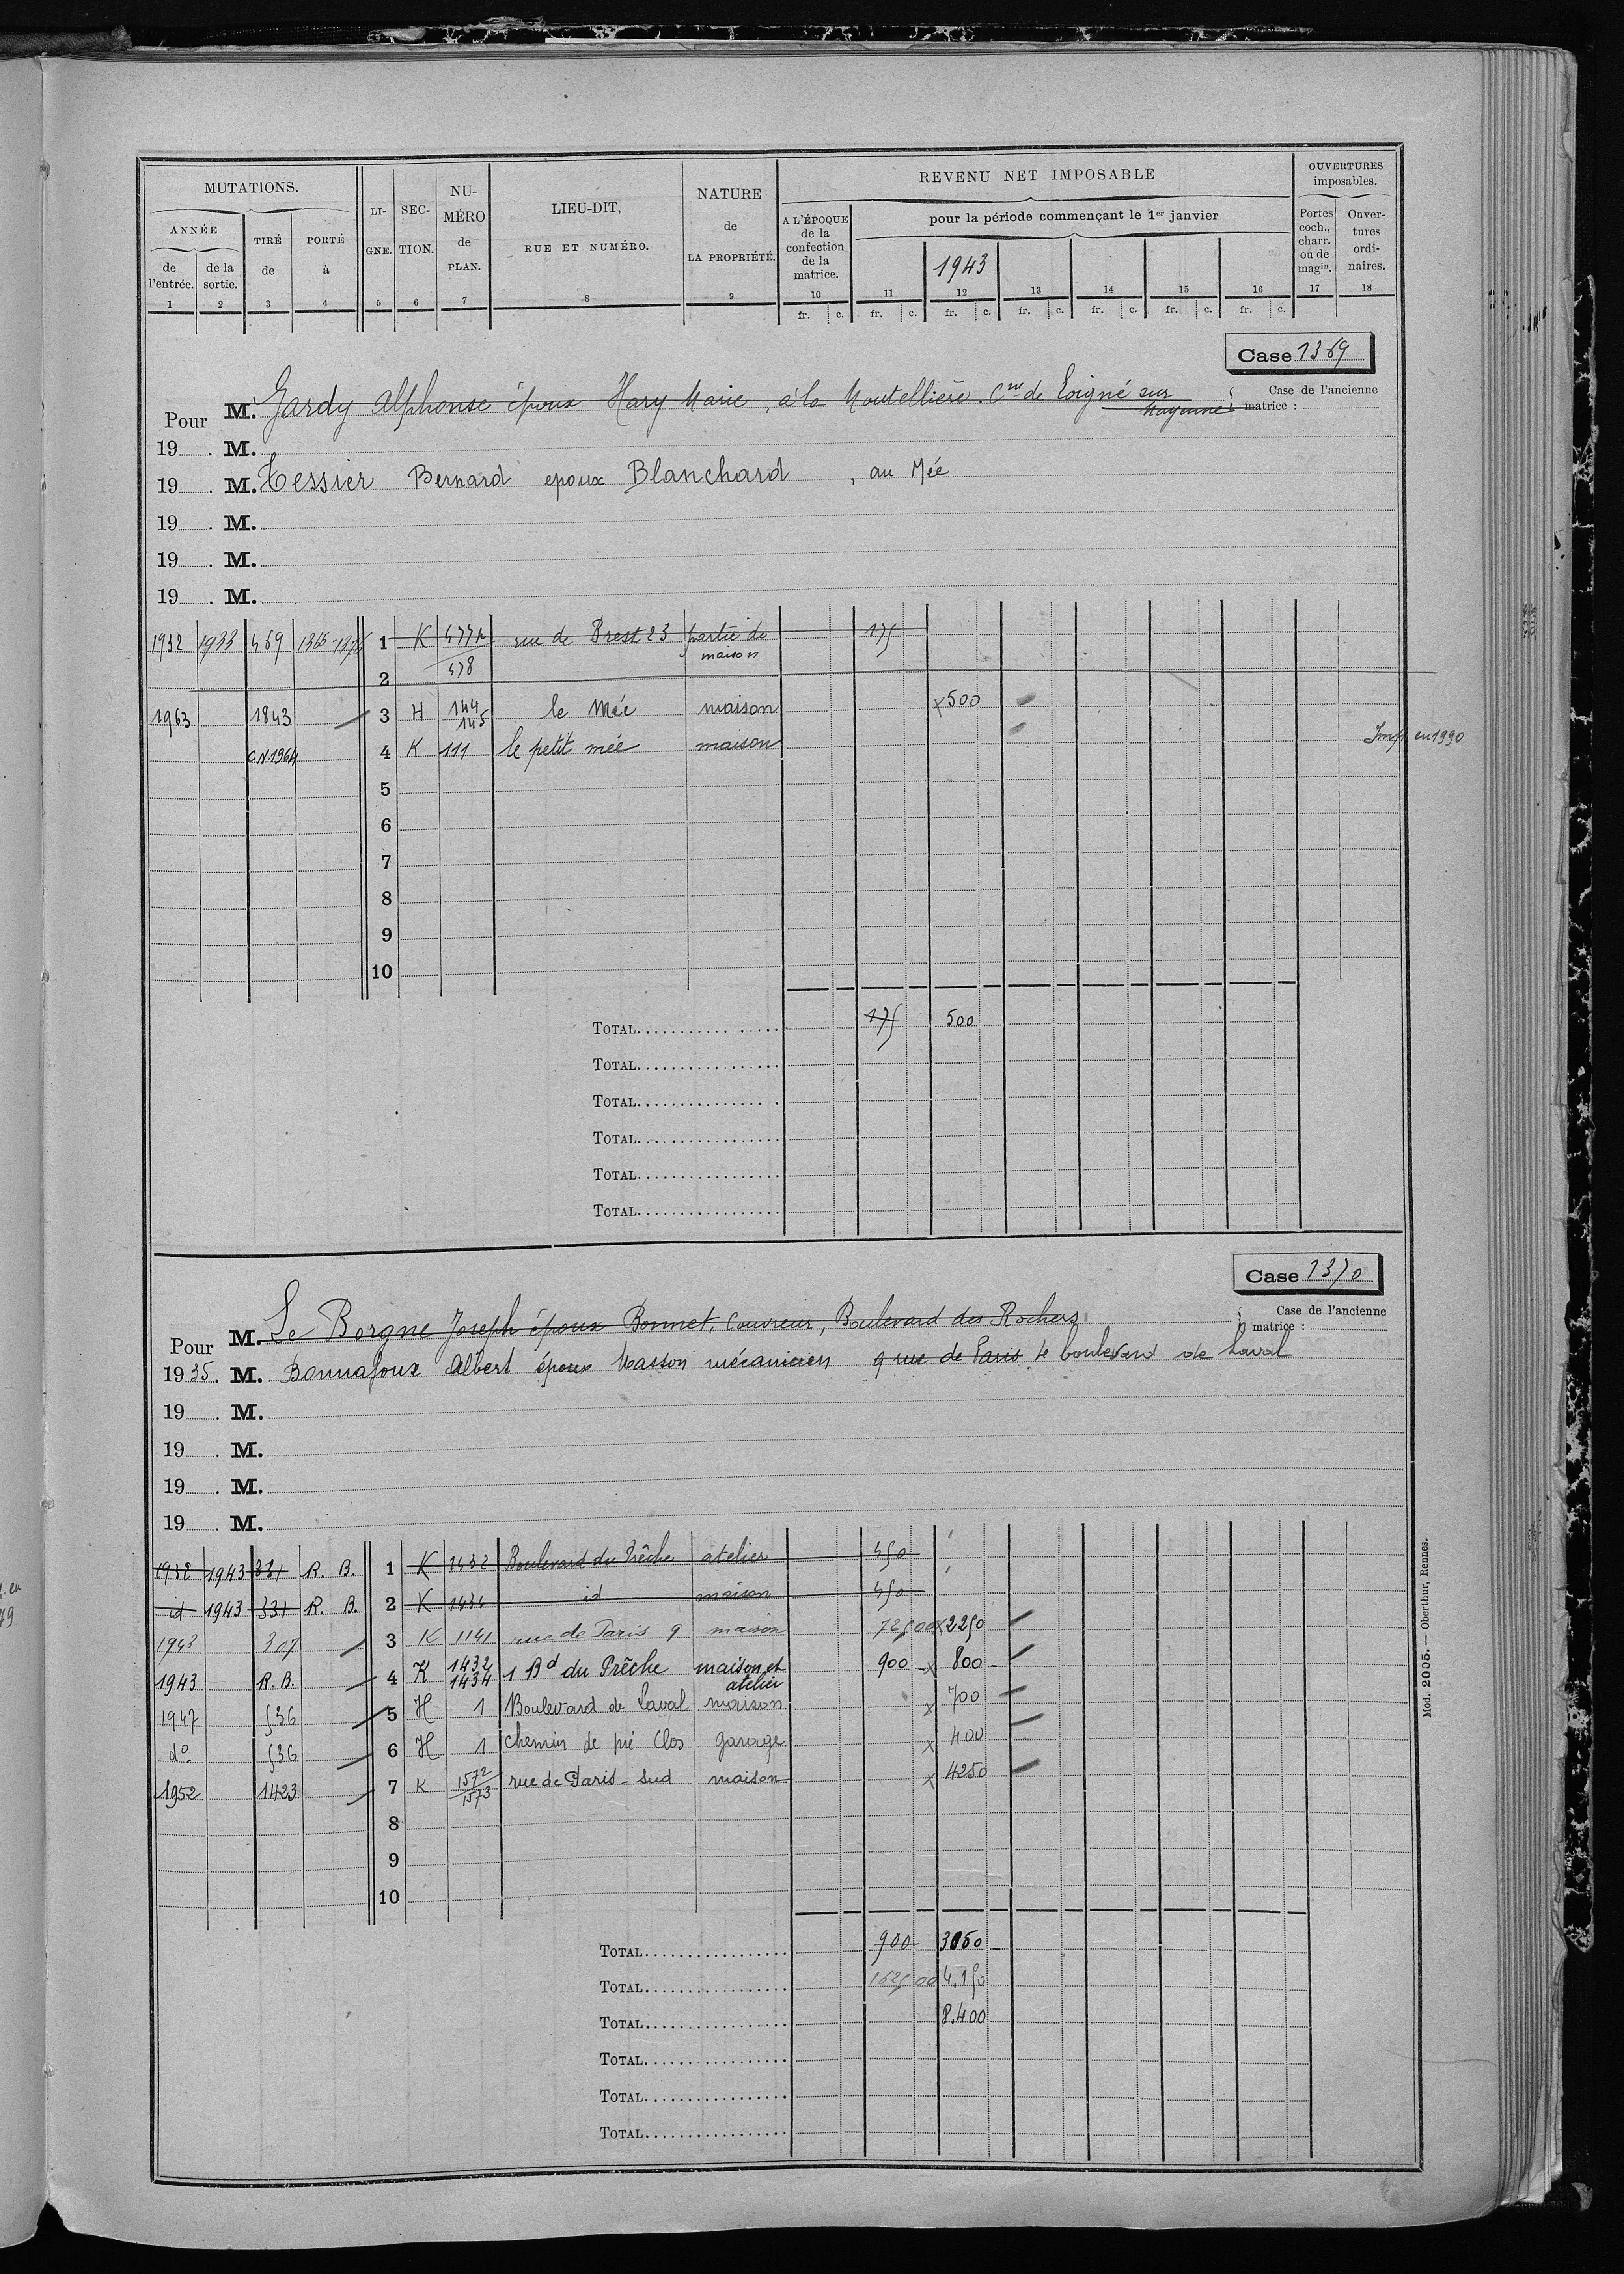 MUTATIONS.
ANNÉE
de l'entrée.
de la sortie.
TIRÉ de
PORTÉ à
LI-GNE.
SEC-TION.
NU-MÉRO de PLAN.
LIEU-DIT, RUE ET NUMÉRO.
NATURE de LA PROPRIÉTÉ.
REVENU NET IMPOSABLE
A L'ÉPOQUE de la confection de la matrice.
pour la période commençant le 1er janvier
1943
OUVERTURES imposables.
Portes coch., charr. ou de magin.
Ouver-tures ordi-naires.
1 2 3 4 5 6 7 8 9 10 11 12 13 14 15 16 17 18
fr. c. fr. c. fr. c. fr. c. fr. c. fr. c. fr. c.
Case 1369
Case de l'ancienne matrice :
Pour M. Gardy Alphonse époux Hary Marie, à la Moutellière. Cne de Loigné sur Mayenne
19 . M.
19 . M. Tessier Bernard epoux Blanchard , au Mée
19 . M.
19 . M.
19 . M.
1932 1933 469 1 K 477 rue de Brest 23 partie de maison 175
2 478
1963 1843 3 H 144 145 le Mée maison x 500
CN 1964 4 K 111 le petit mée maison Imp. en 1990
5
6
7
8
9
10
TOTAL 175 500
TOTAL
TOTAL
TOTAL
TOTAL
TOTAL
Case 1370
Case de l'ancienne matrice :
Pour M. Le Borgne Joseph époux Bonnet, Couvreur, Boulevard des Rochers
1935. M. Bonnafoux Albert époux Masson mécanicien 9 rue de Paris boulevard de Laval
19 . M.
19 . M.
19 . M.
19 . M.
1932 1943 331 R. B. 1 K 1432 Boulevard du Prêche atelier 450
id 1943 331 R. B. 2 K 1434 id maison 450
1943 307 3 K 1141 rue de Paris 9 maison 725 00 x 2250
1943 R. B. 4 K 1432 1434 1 Bd du Prêche maison et atelier 900 x 800
1947 536 5 H 1 Boulevard de Laval maison x 700
do 536 6 H 1 Chemin de pré Clos garage x 400
1952 1423 7 K 1572 1573 rue de Paris - Sud maison x 4250
8
9
10
TOTAL 900 3050
TOTAL 1625 00 4.150
TOTAL 8.400
TOTAL
TOTAL
TOTAL
Mod. 2005. — Oberthur, Rennes.